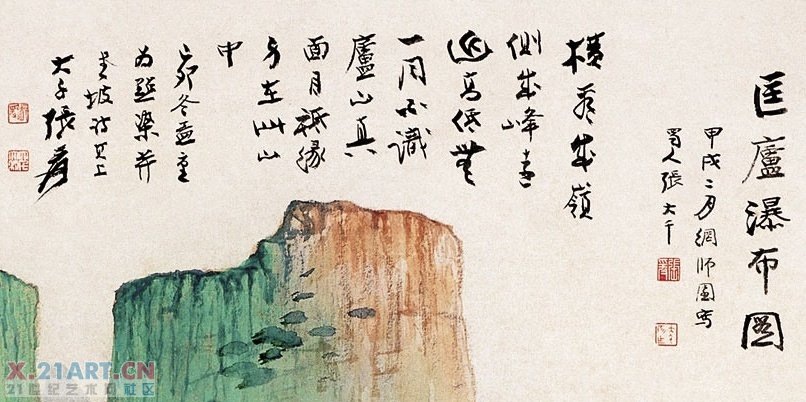 匡廬瀑布圖
甲戌二月網師園寫
蜀人張大千
橫看成嶺
側成峰遠
近高低無
一同不識
廬山真
面目祇緣
身在此山
中
卯冬孟重
为點染并
書坡詩其上
大千張爰
X.21ART.CN
21世纪艺术网社区